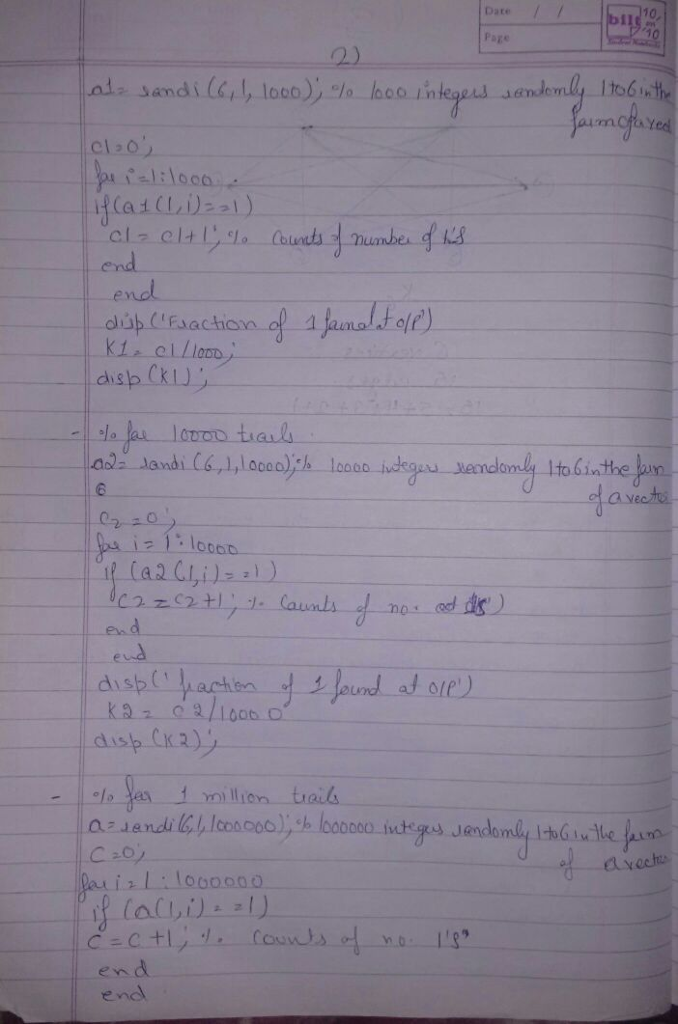 Date / /
Page
bilt 10 on 10
2)
a1= randi (6, 1, 1000); % 1000 integers randomly 1 to 6 in the
form of a vec
c1=0;
for i=1:1000
if(a1(1,i)==1)
c1= c1+1; % Counts of number of 1's
end
end
disp ('Fraction of 1 found at o/p')
K1= c1/1000;
disp (K1);
- % for 10000 trails
a2= randi (6,1,10000);% 10000 integers randomly 1 to 6 in the form
6 of a vecto
c2=0;
for i= 1:10000
if (a2(1,i)==1)
c2=c2+1; % Counts of no.
end
end
disp(' fraction of 1 found at o/p')
K2= c2/10000
disp (K2);
- % for 1 million trails
a=randi(6,1,1000000);% 1000000 integers randomly 1 to 6 in the form
c=0; of a vecto
for i=1:1000000
if (a(1,i)==1)
c=c+1; % Counts of no. 1's
end
end